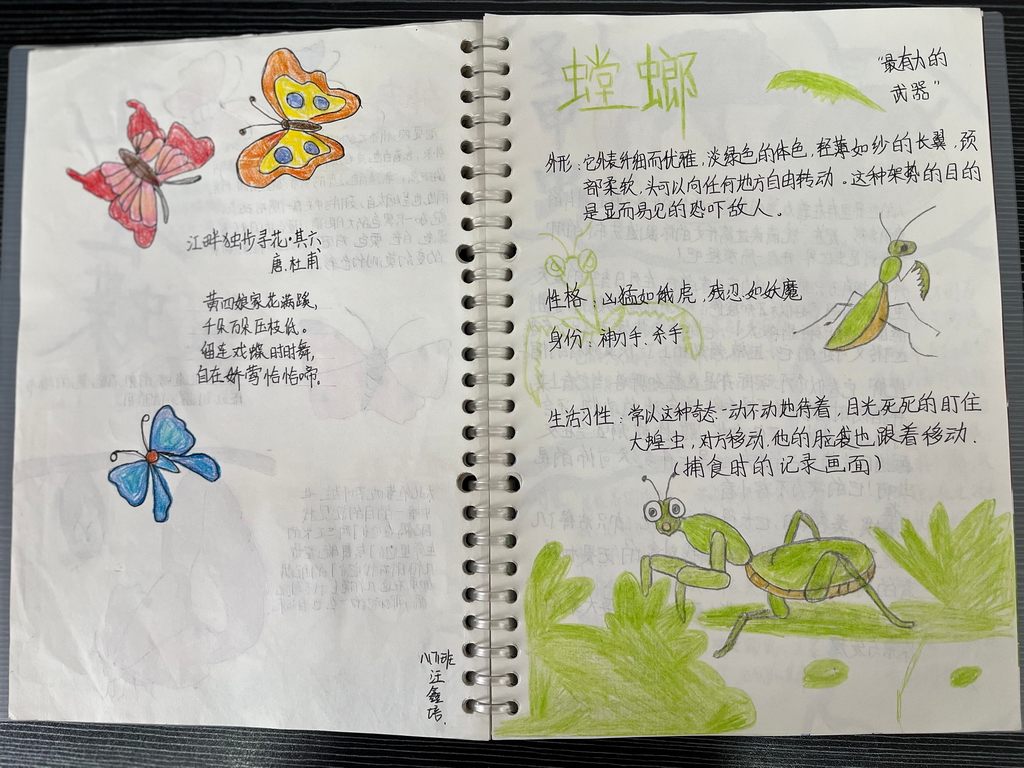 江畔独步寻花·其六
唐.杜甫
黄四娘家花满蹊,
千朵万朵压枝低。
留连戏蝶时时舞,
自在娇莺恰恰啼.
汪鑫培.
螳螂
"最有力的
武器"
外形:它外表纤细而优雅,淡绿色的体色,轻薄如纱的长翼,颈
部柔软,头可以向任何地方自由转动。这种架势的目的
是显而易见的恐吓敌人。
性格:凶猛如饿虎,残忍如妖魔
身份:神刀手、杀手
生活习性:常以这种奇态一动不动地待着,目光死死的盯住
大蝗虫,对方移动,他的脑袋也跟着移动.
(捕食时的记录画面)